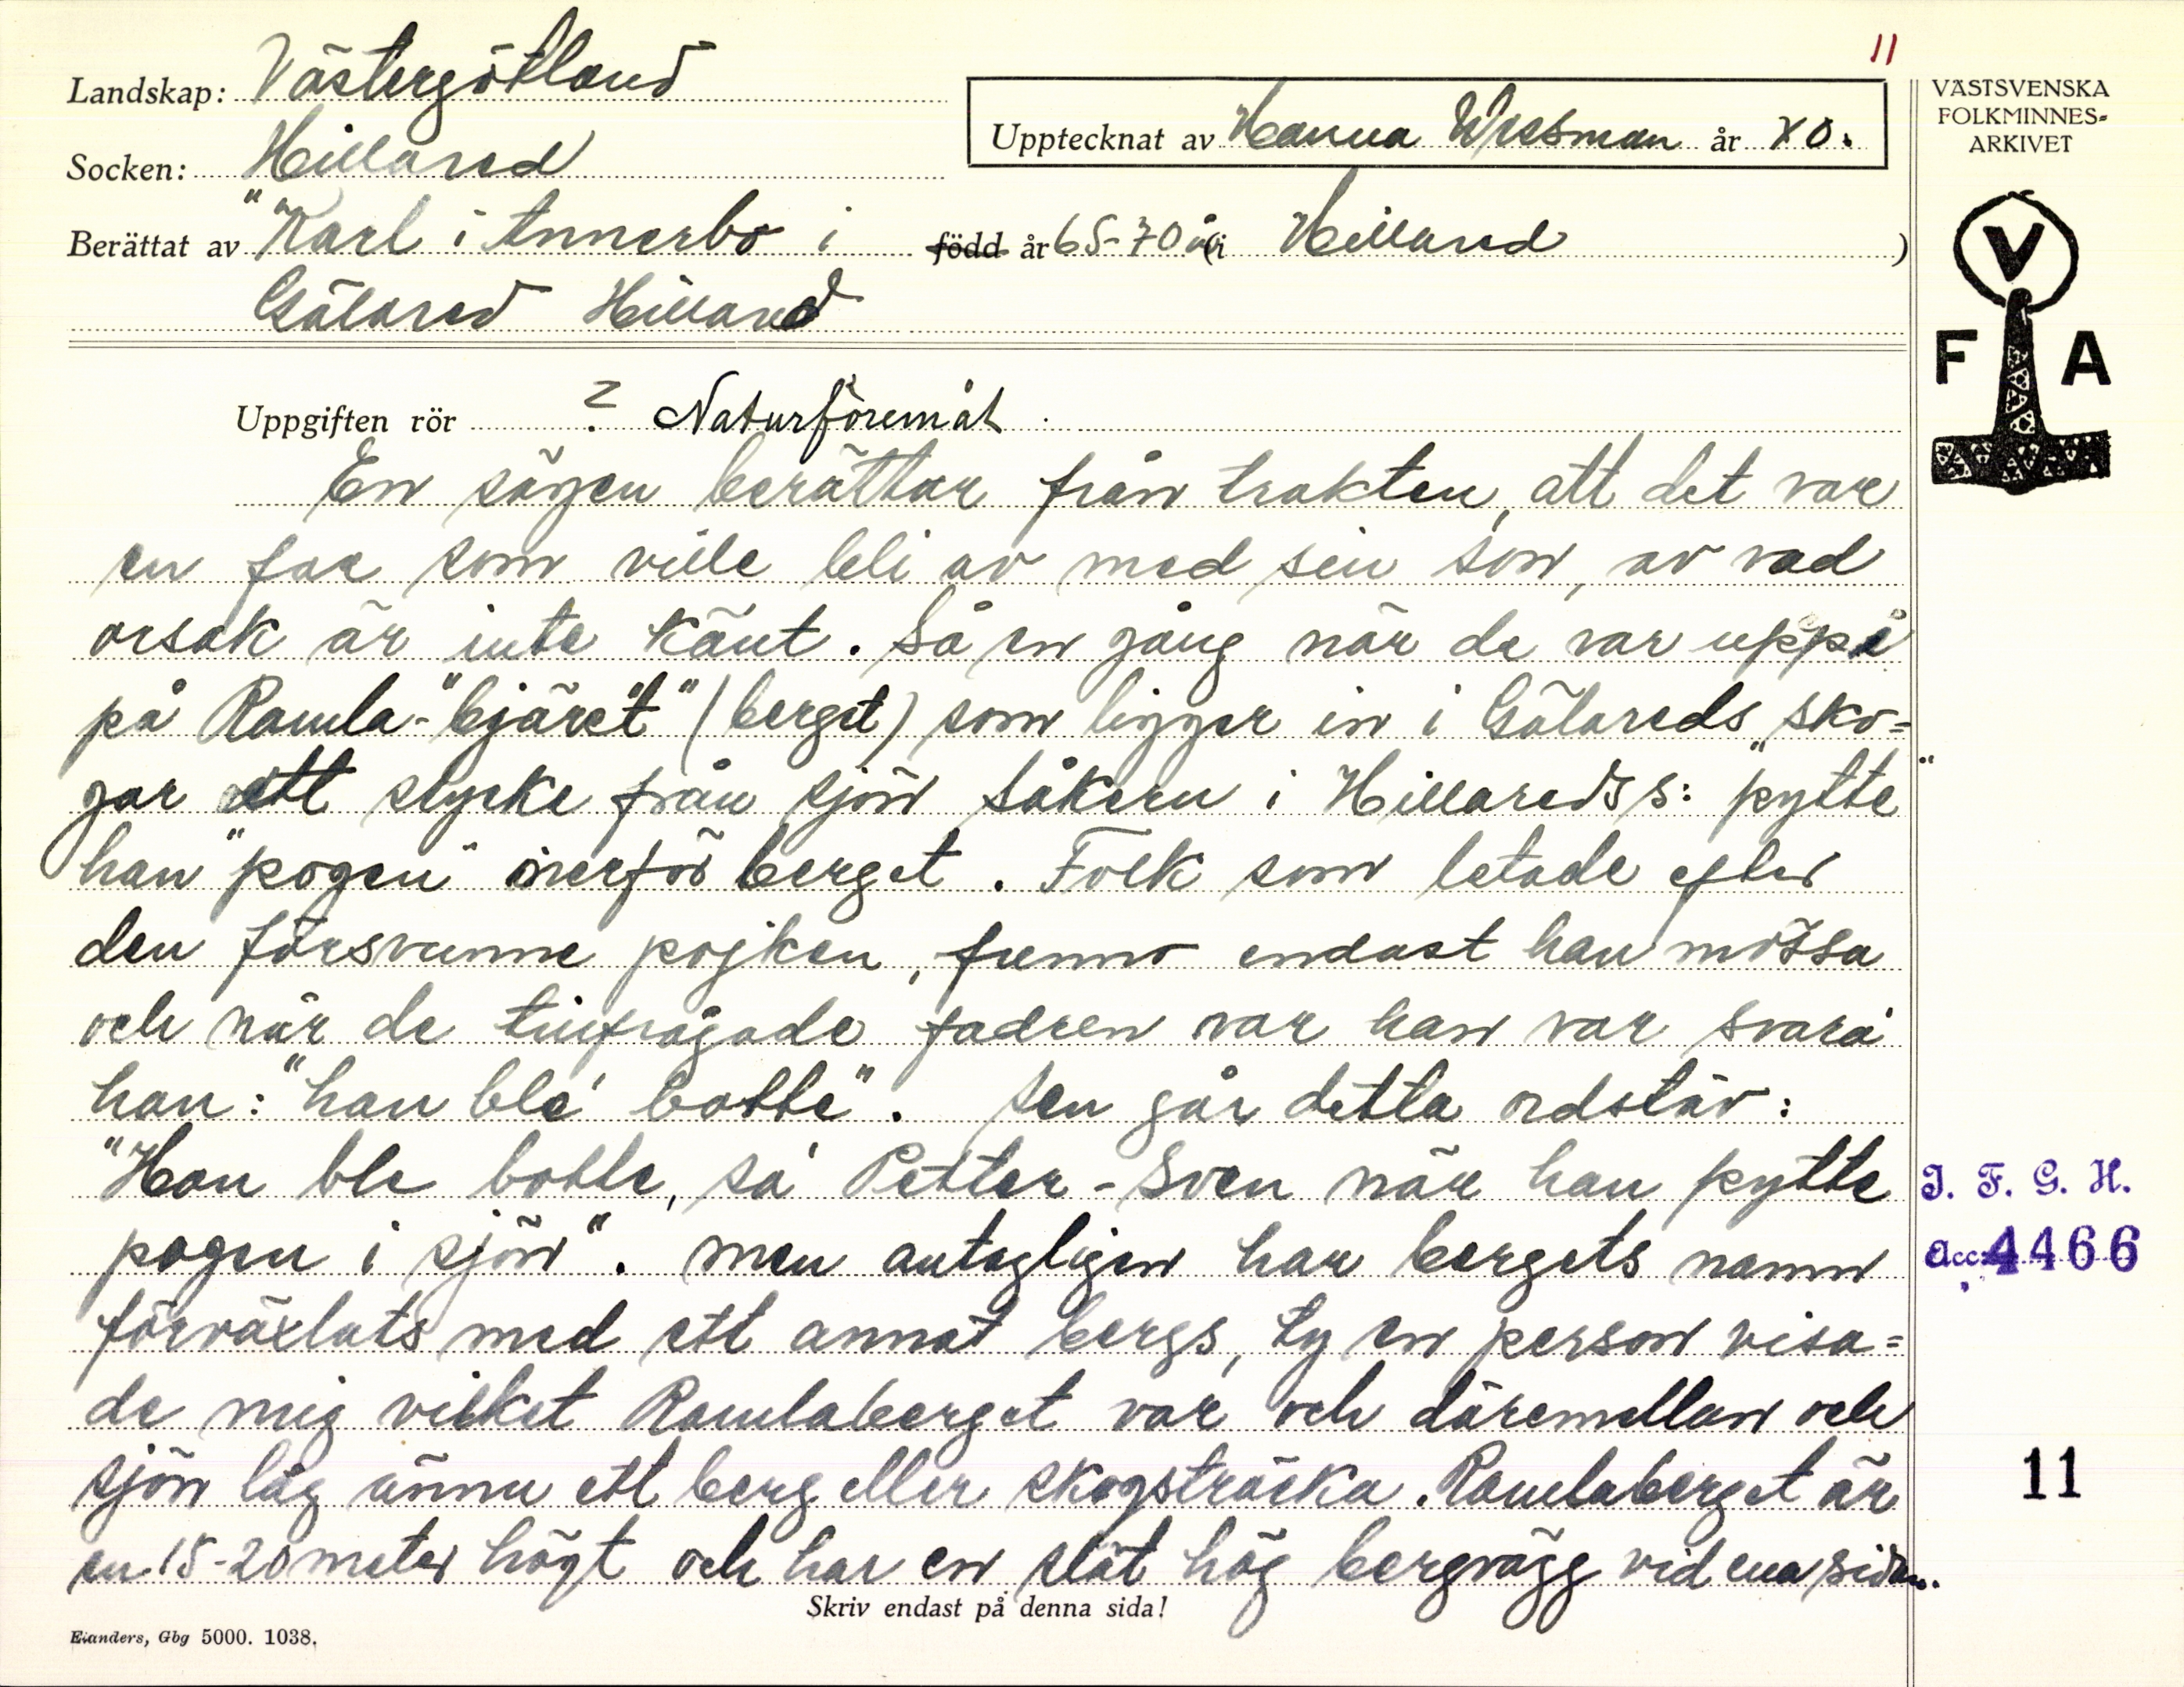 11
Landskap: Västergötland
Socken: Hillared
Upptecknat av Hanna Wessman år 40.
Berättat av "Karl i Annerbo" i född år 65-70 år (i Hillared)
Gälared Hillared
VÄSTSVENSKA
FOLKMINNES-
ARKIVET
V
F A
Uppgiften rör ? Naturföremål
En sägen berättar från trakten, att det var
en far som ville bli av med sin son, av vad
orsak är inte känt. Så en gång när de var uppe
på Ramla-"bjäret" (berget) som ligger in i Gälareds sko=
gar ett stycke från sjön Såken i Hillareds s: "pytte"
han "pogen" nerför berget. Folk som letade efter
den försvunne pojken, funno endast han mössa
och när de tillfrågade fadren var han var svara'
han: "han ble' botte". Sen går detta ordstäv:
"Han ble botte, sa' Petter-Sven när han pytte
pogen i sjön". Men antagligen har bergets namn
förväxlats med ett annat bergs, ty en person visa=
de mig vilket Ramlaberget var och däremellan och
sjön låg ännu ett berg eller skogsträcka. Ramlaberget är
en 15-20 meter högt och har en slät hög bergvägg vid ena sidan.
I. F. G. H.
acc 4466
11
Skriv endast på denna sida!
Elanders, Gbg 5000. 1038.